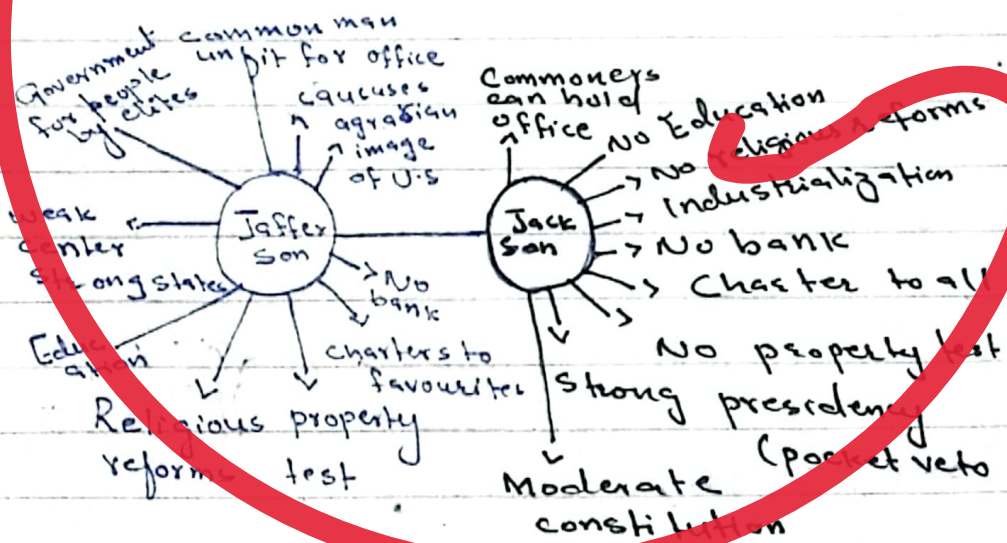 Government
for people
by elites
common man
unfit for office
caucuses
agrarian
image
of U.S
weak
center
strong states
Jaffer
son
No
bank
Educ
ation
Religious
reforms
property
test
charters to
favourites
Commoners
can hold
office
No Education
No religious reforms
Industrialization
Jack
son
No bank
Charter to all
No property test
Strong presidency
(pocket veto
Moderate
constitution